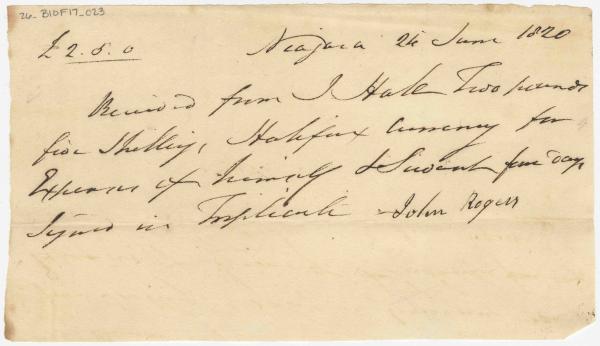 26-B10F17-023
£2.5.0 Niagara 24 June 1820
Received from J Hale Two pounds
five Shillings, Halifax Currency for
Expenses of himself & Servant four days
Signed in Triplicate John Rogers